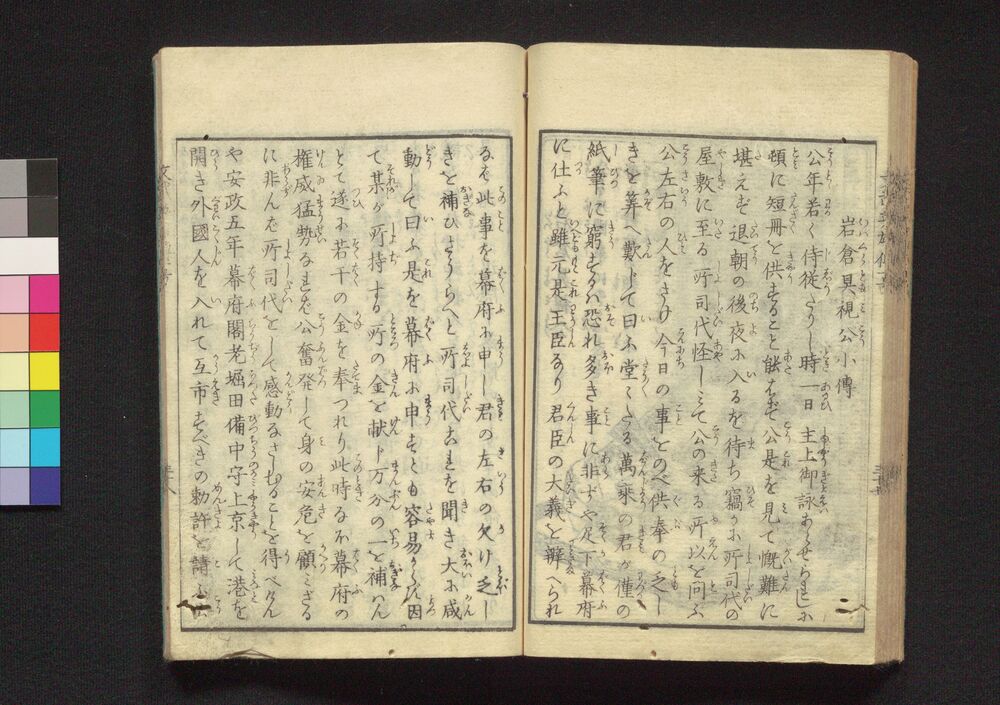 岩倉具視公小傳
公年若く侍従たりし時一日主上御詠あらせられしに
頓に短冊を供すること能はず公是を見て慨難に
堪えず退朝の後夜に入るを待ち竊に所司代の
屋敷に至る所司代怪しミて公の来る所以を問ふ
公左右の人をさけ今日の事をのべ供奉の乏し
きを算へ歎じて曰ふ堂々たる萬乗の君が僅の
紙筆に窮するハ恐れ多き事に非ずや足下幕府
に仕ふと雖元是王臣なり君臣の大義を辨へられ
なバ此事を幕府に申し君の左右の欠け乏し
きを補ひまゐらへと所司代これを聞き大に感
動して曰ふ是を幕府に申すとも容易からず因
て某が所持する所の金を献じ万分の一を補はん
とて遂に若干の金を奉つれり此時なほ幕府の
権威猛勢なるを公奮発して身の安危を顧ミざる
に非んを所司代をして感動なさしむることを得べけん
や安政五年幕府閣老堀田備中守上京して港を
開き外國人を入れて互市すべきの勅許を請ふ